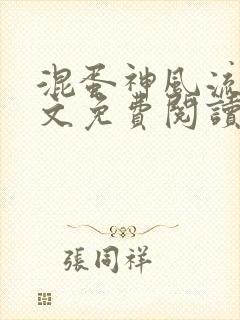 混蛋神風流
文免費閱讀
張同祥